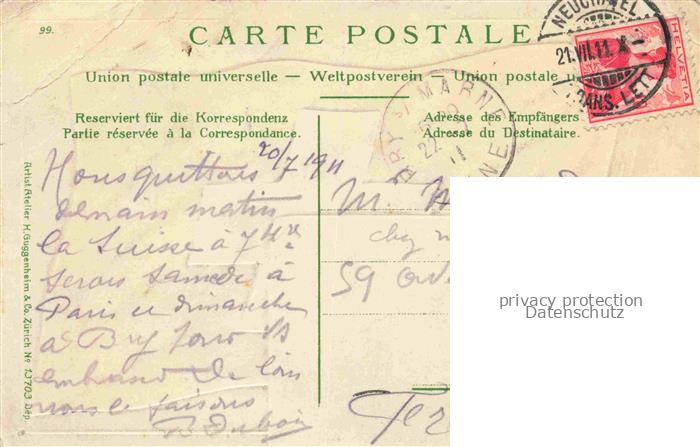 99.
CARTE POSTALE
Union postale universelle — Weltpostverein — Union postale u
Reserviert für die Korrespondenz
Partie réservée à la Correspondance.
Adresse des Empfängers
Adresse du Destinataire.
NEUCHATEL
21.VII.11. X
TRANS. LETT
HELVETIA
BRY S. MARNE
22
11
20/7 1911
Nous quittons
demain matin
la Suisse à 7 H
serons samedi à
Paris et dimanche
à Bry
de loin
nous le faisons
B Dubois
M.
chez
59
Artist. Atelier H. Guggenheim & Co. Zürich No 13703 Dép.
privacy protection
Datenschutz